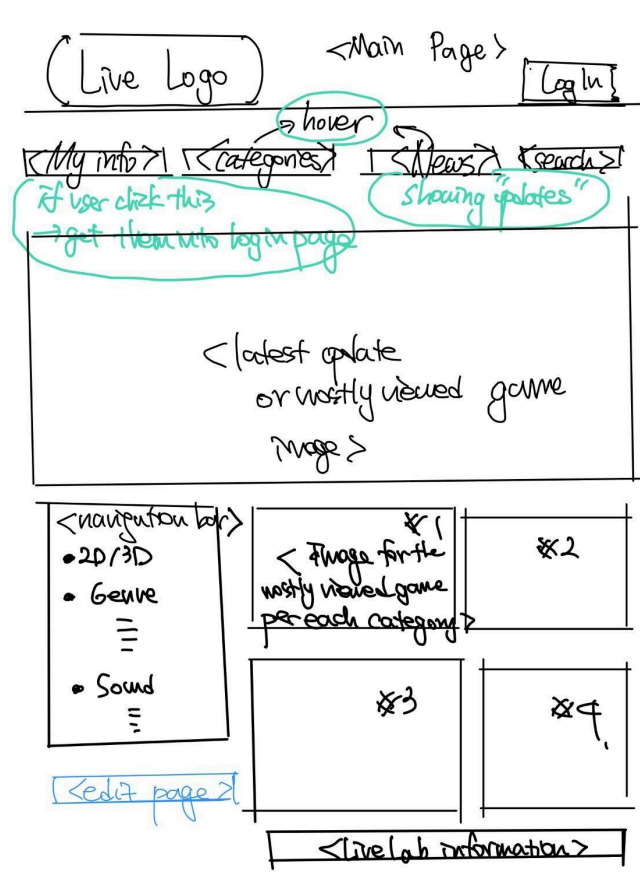 <Main Page>
Live Logo
Log In
hover
<My info>
<categories>
<News>
<search>
if user click this
→ get them into login page
showing "updates"
<latest update
or mostly viewed game
image>
<navigation bar>
• 2D/3D
• Genre
• Sound
※1
< Image for the
mostly viewed game
per each category>
※2
※3
※4.
<edit page>
<live lab information>